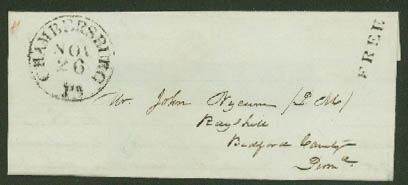 CHAMBERSBURG
NOV
26
Pa
FREE
Mr. John Nycum (P M)
Rays hill
Bedford County
Penna.